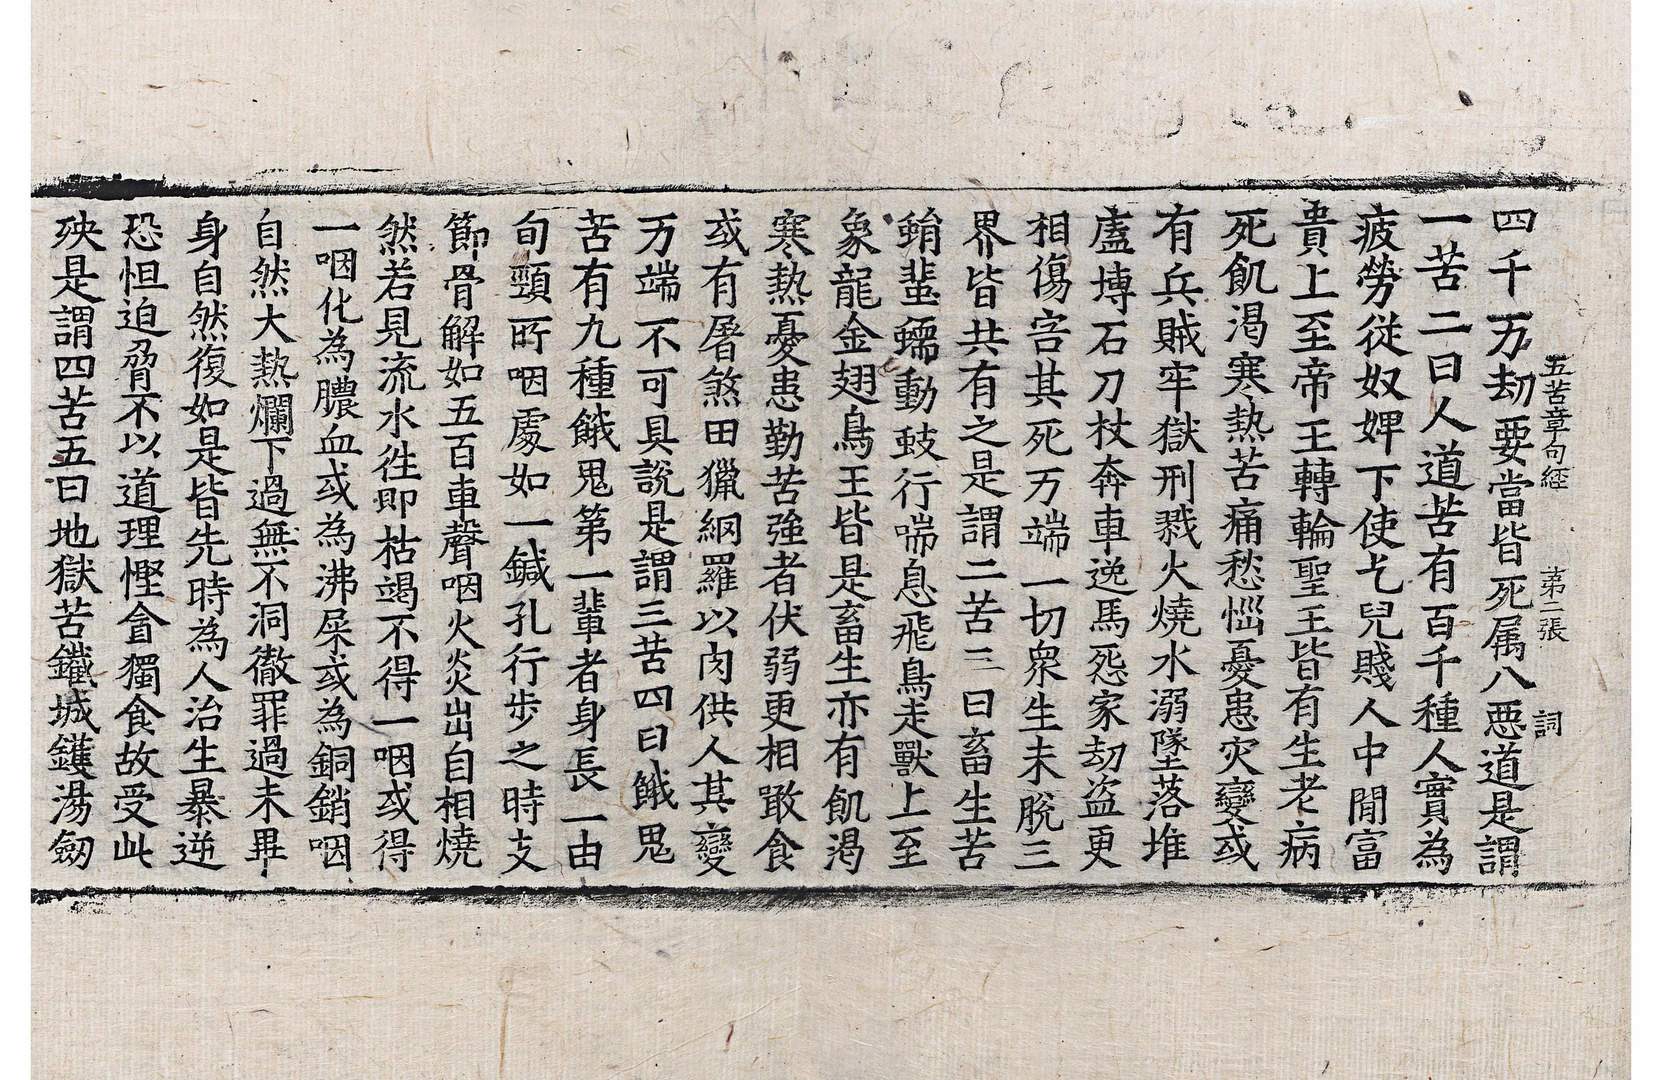 五苦章句經　第二張　詞
四千万劫要當皆死属八惡道是謂
一苦二曰人道苦有百千種人實為
疲勞從奴婢下使乞兒賤人中閒富
貴上至帝王轉輪聖王皆有生老病
死飢渴寒熱苦痛愁惱憂恚灾變或
有兵賊牢獄刑戮火燒水溺墜落堆
盧博石刀杖奔車逸馬怨家劫盗更
相傷害其死万端一切衆生未脫三
界皆共有之是謂二苦三曰畜生苦
蜎蜚蠕動蚑行喘息飛鳥走獸上至
象龍金翅鳥王皆是畜生亦有飢渴
寒熱憂恚勤苦強者伏弱更相噉食
或有屠煞田獵網羅以肉供人其變
万端不可具說是謂三苦四曰餓鬼
苦有九種餓鬼第一輩者身長一由
旬頸所咽處如一鍼孔行步之時支
節骨解如五百車聲咽火炎出自相燒
然若見流水徃即枯竭不得一咽或得
一咽化為膿血或為沸屎或為銅銷咽
自然大熱爛下過無不洞徹罪過未畢
身自然復如是皆先時為人治生暴逆
恐怛迫脅不以道理慳貪獨食故受此
殃是謂四苦五曰地獄苦鐵城鑊湯劒